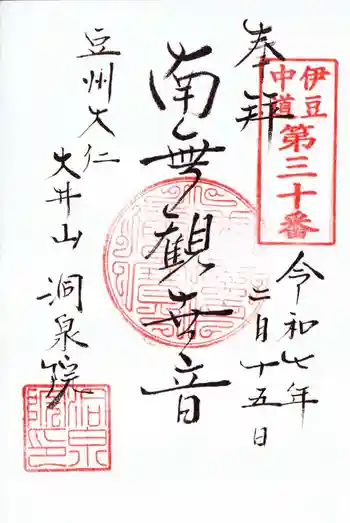 奉拝
伊豆
中道
第三十番
令和七年
二月十五日
南無観世音
豆州大仁
大井山 洞泉院
洞泉
院印